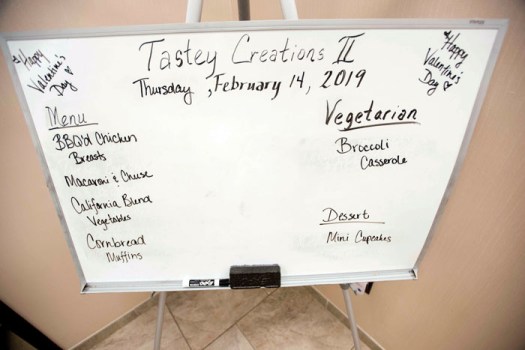 Tastey Creations II
Thursday, February 14, 2019
Happy
Valentine's
Day
Happy
Valentine's
Day
Menu
BBQ'd Chicken
Breasts
Macaroni & Chese
California Blend
Vegetables
Cornbread
Muffins
Vegetarian
Broccoli
Casserole
Dessert
Mini Cupcakes